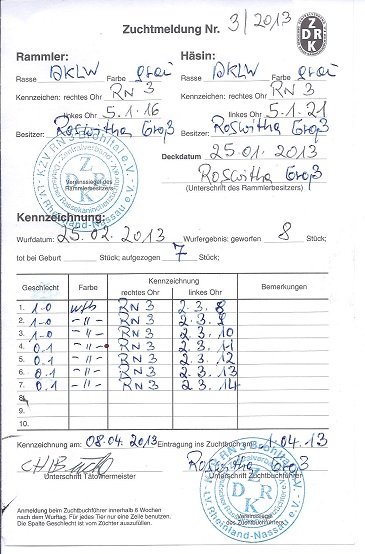 Zuchtmeldung Nr. 3/2013
ZDRK
Rammler: Häsin:
Rasse DKLW Farbe grau Rasse DKLW Farbe grau
Kennzeichen: rechtes Ohr RN 3 Kennzeichen: rechtes Ohr RN 3
linkes Ohr 5.1.16 linkes Ohr 5.1.21
Besitzer: Roswitha Groß Besitzer: Roswitha Groß
Deckdatum 25.01.2013
Vereinssiegel des Rammlerbesitzers
Roswitha Groß
(Unterschrift des Rammlerbesitzers)
Kennzeichnung:
Wurfdatum: 25.02.2013 Wurfergebnis: geworfen 8 Stück;
tot bei Geburt Stück; aufgezogen 7 Stück;
Geschlecht Farbe Kennzeichnung Bemerkungen
rechtes Ohr linkes Ohr
1. 1-0 RN 3 2.3.8
2. 1-0 -"- RN 3 2.3.9
3. 1-0 -"- RN 3 2.3.10
4. 0.1 -"- RN 3 2.3.11
5. 0.1 -"- RN 3 2.3.12
6. 0.1 -"- RN 3 2.3.13
7. 0.1 -"- RN 3 2.3.14
8.
9.
10.
Kennzeichnung am: 08.04.2013 Eintragung ins Zuchtbuch am: 04.13
Roswitha Groß
Unterschrift Tätowiermeister Unterschrift Zuchtbuchführer
Anmeldung beim Zuchtbuchführer innerhalb 6 Wochen
nach dem Wurftag. Für jedes Tier nur eine Zeile benutzen.
Die Spalte Geschlecht ist vom Züchter auszufüllen.
Vereinssiegel
des Zuchtbuchführers